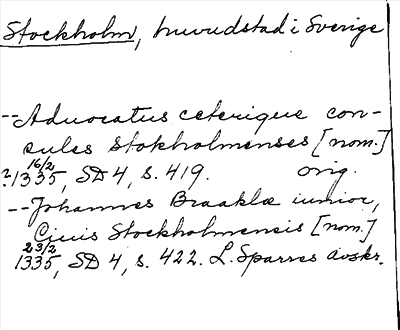 Stockholm, huvudstad i Sverige
-- Aduocatus ceterique con-
sules Stokholmenses [nom.]
?. 16/2 1335, SD 4, s. 419. orig.
-- Johannes Braaklæ iunior,
Ciuis Stockholmensis [nom.]
23/2 1335, SD 4, s. 422. L. Sparres avskr.